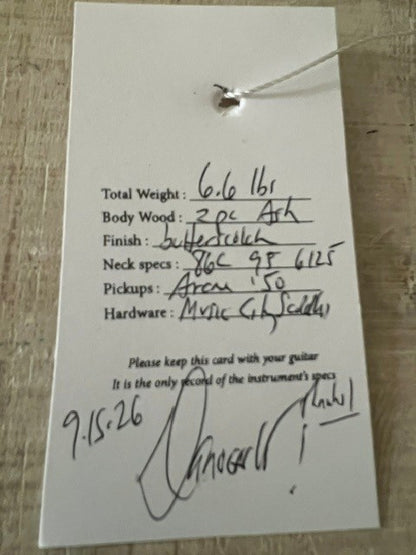 Total Weight : 6.6 lbs
Body Wood : 2 pc Ash
Finish : butterscotch
Neck specs : 86C 98 6125
Pickups : Arcane '50
Hardware : Music City Saddles
Please keep this card with your guitar
It is the only record of the instrument's specs
9.15.26